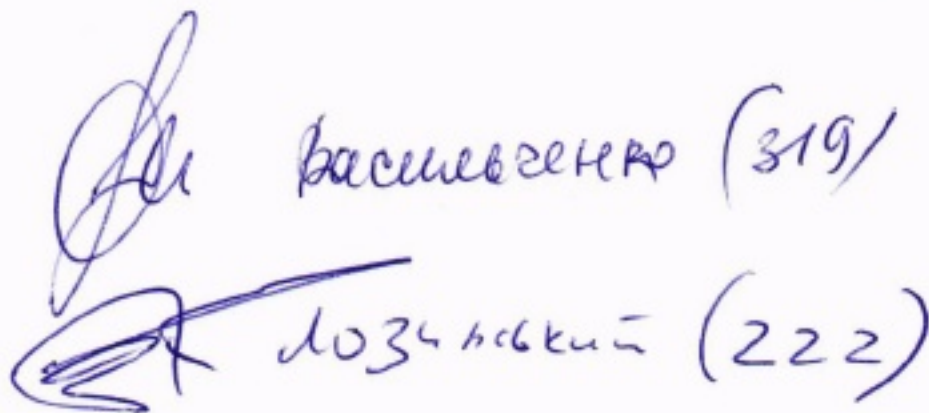 Васильченко (319)
Лозинський (222)